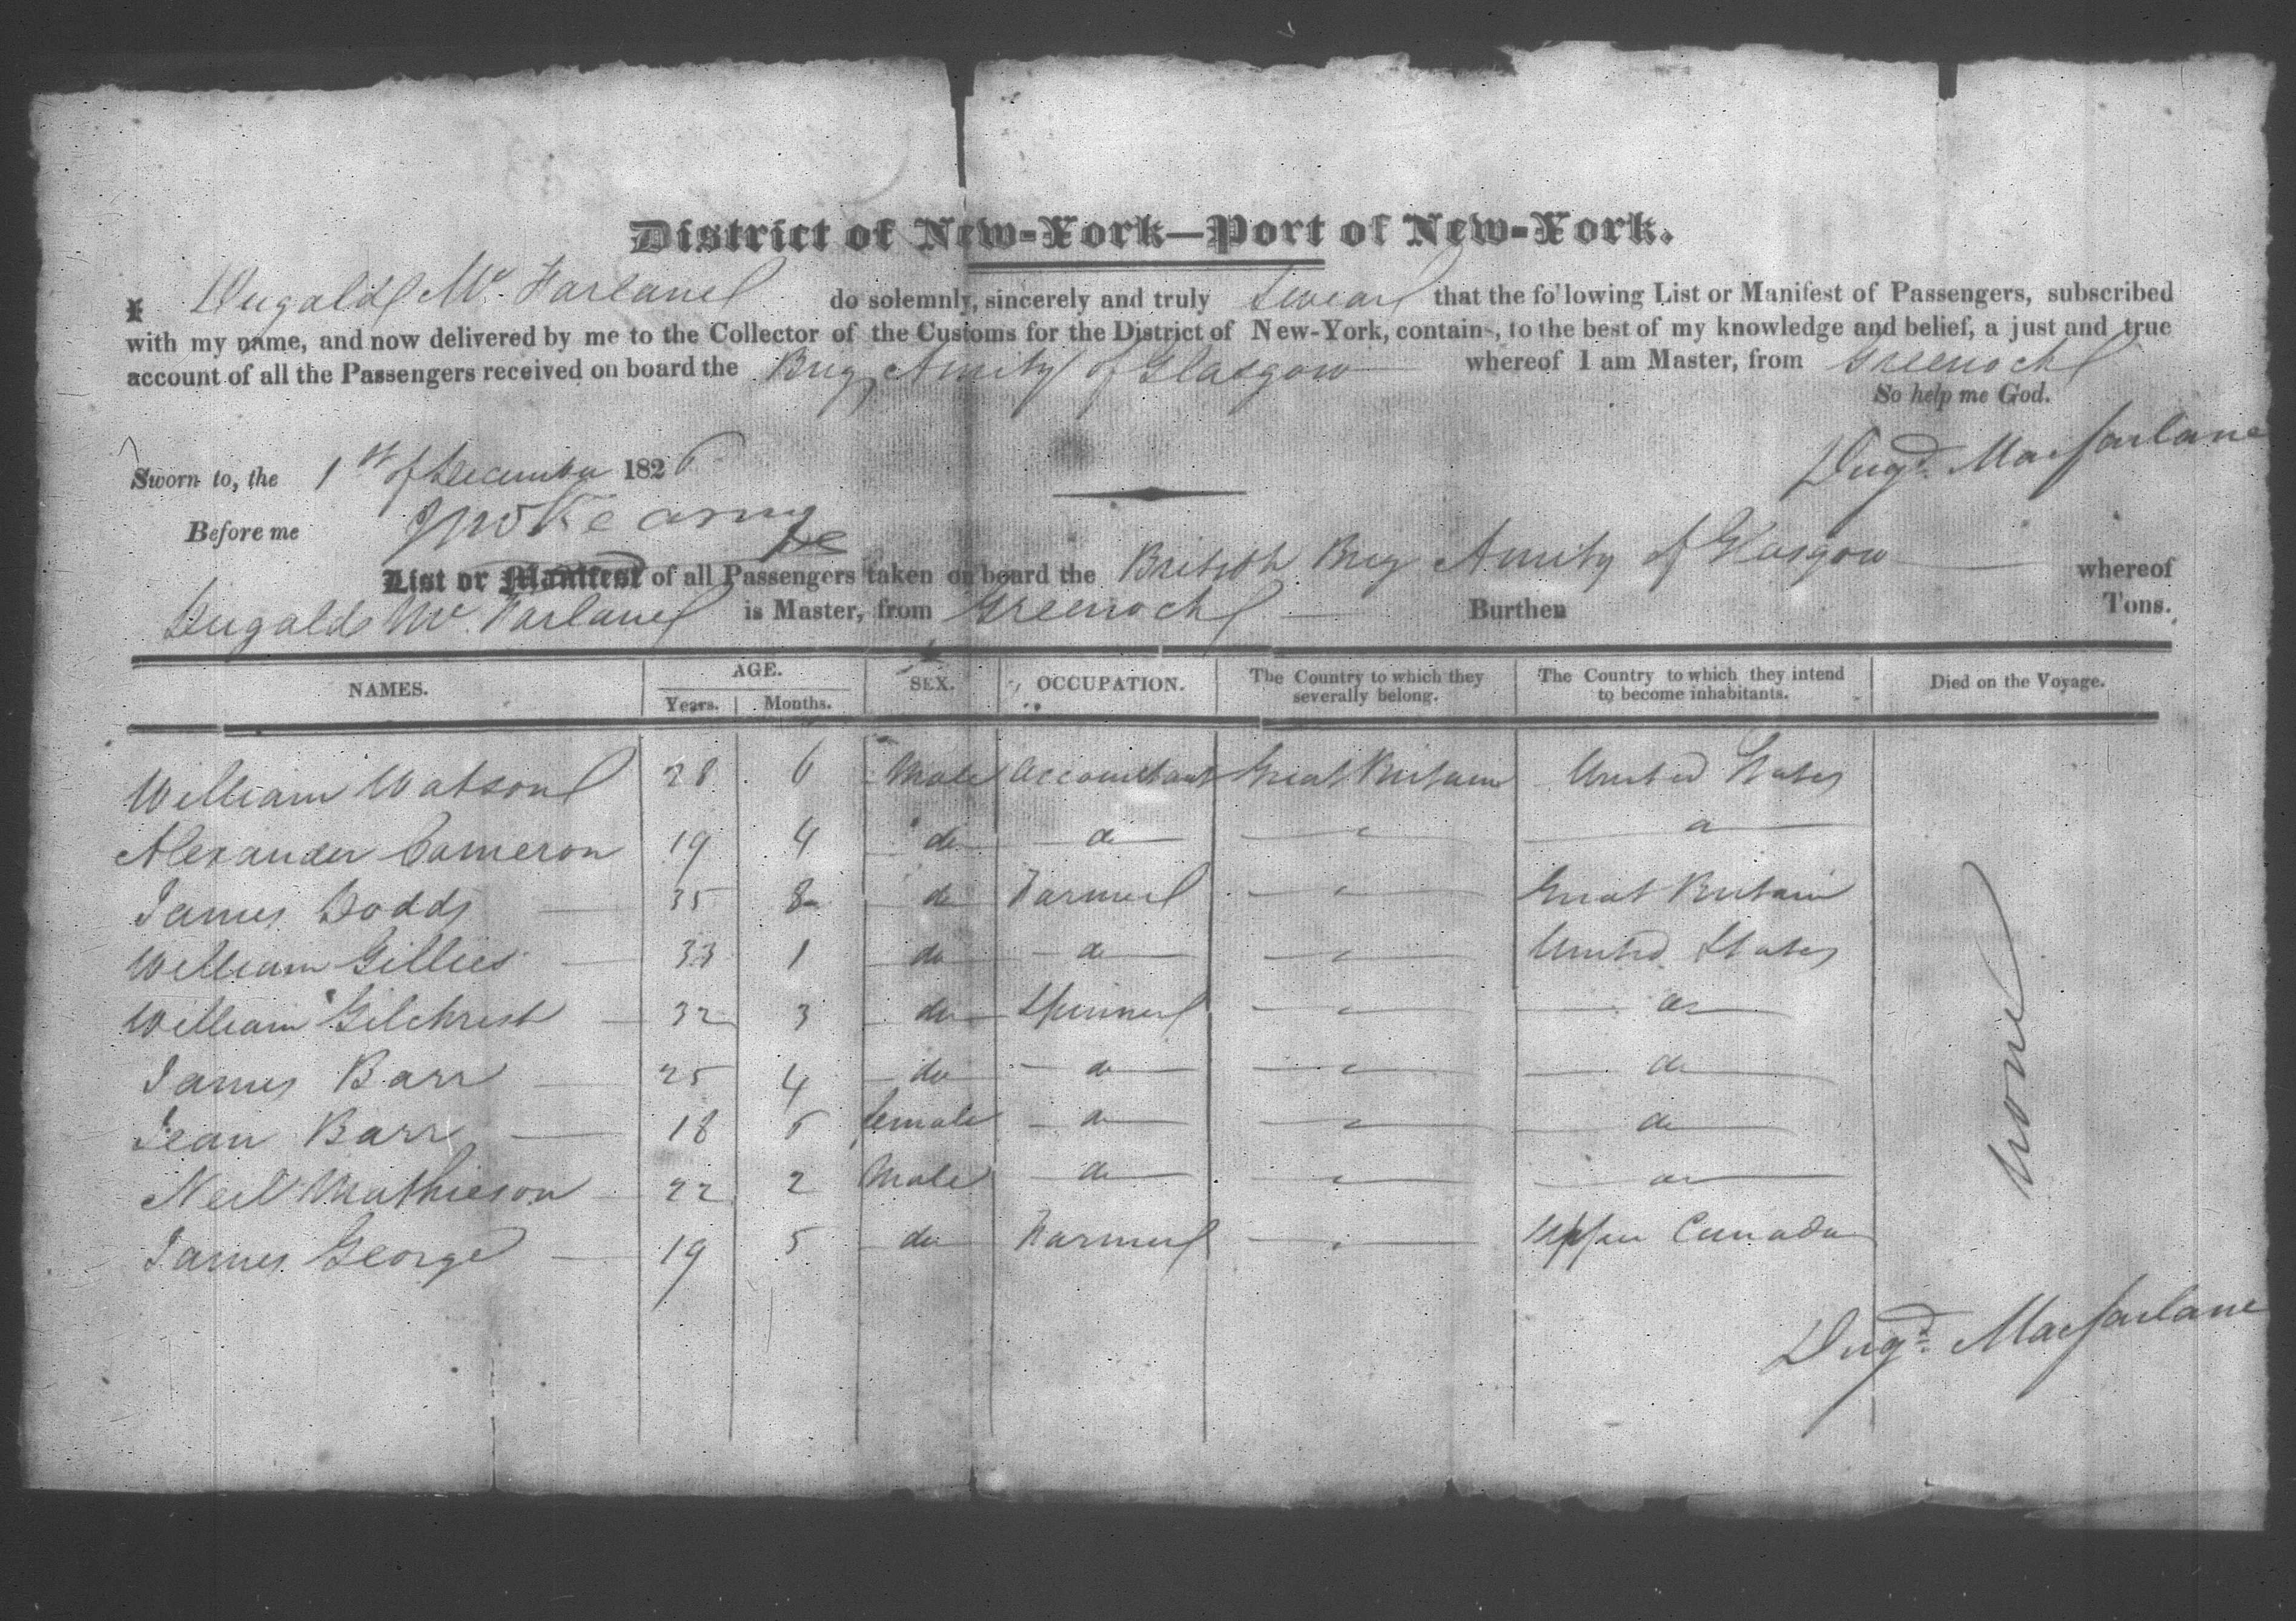 District of New-York—Port of New-York.
I Dugald Mc. Farlane do solemnly, sincerely and truly Swear that the following List or Manifest of Passengers, subscribed
with my name, and now delivered by me to the Collector of the Customs for the District of New-York, contains, to the best of my knowledge and belief, a just and true
account of all the Passengers received on board the Brig Amity of Glasgow whereof I am Master, from Greenock
So help me God.
Sworn to, the 1st of December 1826 Dugd. Macfarlane
Before me
List or Manifest of all Passengers taken on board the British Brig Amity of Glasgow whereof
Dugald Mc. Farlane is Master, from Greenock Burthen Tons.
NAMES. AGE. Years. Months. SEX. OCCUPATION. The Country to which they severally belong. The Country to which they intend to become inhabitants. Died on the Voyage.
William Watson 28 6 Male Accountant Great Britain United States
Alexander Cameron 19 4 do do " do
James Dodds 35 8 do Farmer " Great Britain
William Gillies 33 1 do do " United States
William Gilchrist 32 3 do Spinner " do
James Barr 25 4 do do " do
Jean Barr 18 6 female do " do
Neil Mathieson 22 2 Male do " do
James George 19 5 do Farmer " Upper Canada
none
Dugd. Macfarlane